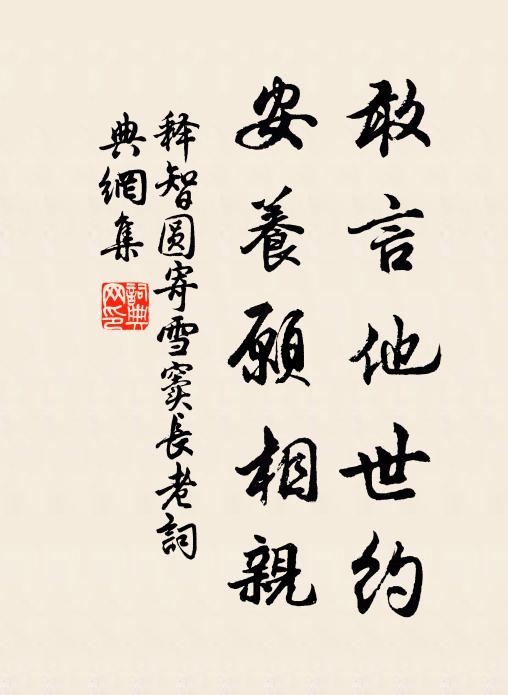 敢言他世约
安養願相親
释智圆寄雪窦長老詞
典網集
詞典
网印